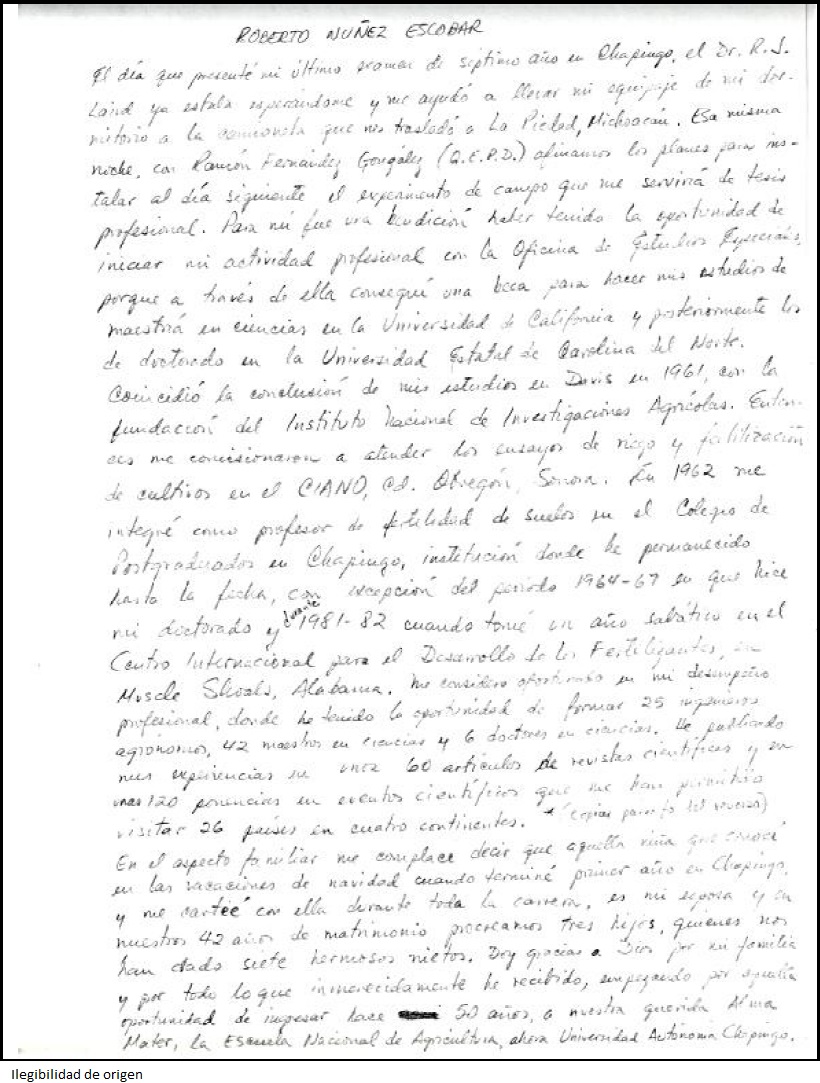 ROBERTO NUÑEZ ESCOBAR
El día que presenté mi último examen de séptimo año en Chapingo, el Dr. R. J.
Laird ya estaba esperándome y me ayudó a llevar mi equipaje de mi dor-
mitorio a la camioneta que nos trasladó a La Piedad, Michoacán. Esa misma
noche, con Ramón Fernández González (Q.E.P.D.) afinamos los planes para ins-
talar al día siguiente el experimento de campo que me serviría de tesis
profesional. Para mí fue una bendición haber tenido la oportunidad de
iniciar mi actividad profesional con la Oficina de Estudios Especiales,
porque a través de ella conseguí una beca para hacer mis estudios de
maestría en ciencias en la Universidad de California y posteriormente los
de doctorado en la Universidad Estatal de Carolina del Norte.
Coincidió la conclusión de mis estudios en Davis en 1961, con la
fundación del Instituto Nacional de Investigaciones Agrícolas. Enton-
ces me comisionaron a atender los ensayos de riego y fertilización
de cultivos en el CIANO, Cd. Obregón, Sonora. En 1962 me
integré como profesor de fertilidad de suelos en el Colegio de
Postgraduados en Chapingo, institución donde he permanecido
hasta la fecha, con excepción del periodo 1964-67 en que hice
mi doctorado y durante 1981-82 cuando tomé un año sabático en el
Centro Internacional para el Desarrollo de los Fertilizantes, en
Muscle Shoals, Alabama. Me considero afortunado en mi desempeño
profesional, donde he tenido la oportunidad de formar 25 ingenieros
agrónomos, 42 maestros en ciencias y 6 doctores en ciencias. He publicado
mis experiencias en unos 60 artículos de revistas científicas y en
unas 120 ponencias en eventos científicos que me han permitido
visitar 26 países en cuatro continentes. * (copiar párrafo del reverso)
En el aspecto familiar me complace decir que aquella niña que conocí
en las vacaciones de navidad cuando terminé primer año en Chapingo,
y me carteé con ella durante toda la carrera, es mi esposa y en
nuestros 42 años de matrimonio procreamos tres hijos, quienes nos
han dado siete hermosos nietos. Doy gracias a Dios por mi familia
y por todo lo que inmerecidamente he recibido, empezando por aquella
oportunidad de ingresar hace 50 años, a nuestra querida Alma
Mater, la Escuela Nacional de Agricultura, ahora Universidad Autónoma Chapingo.
Ilegibilidad de origen